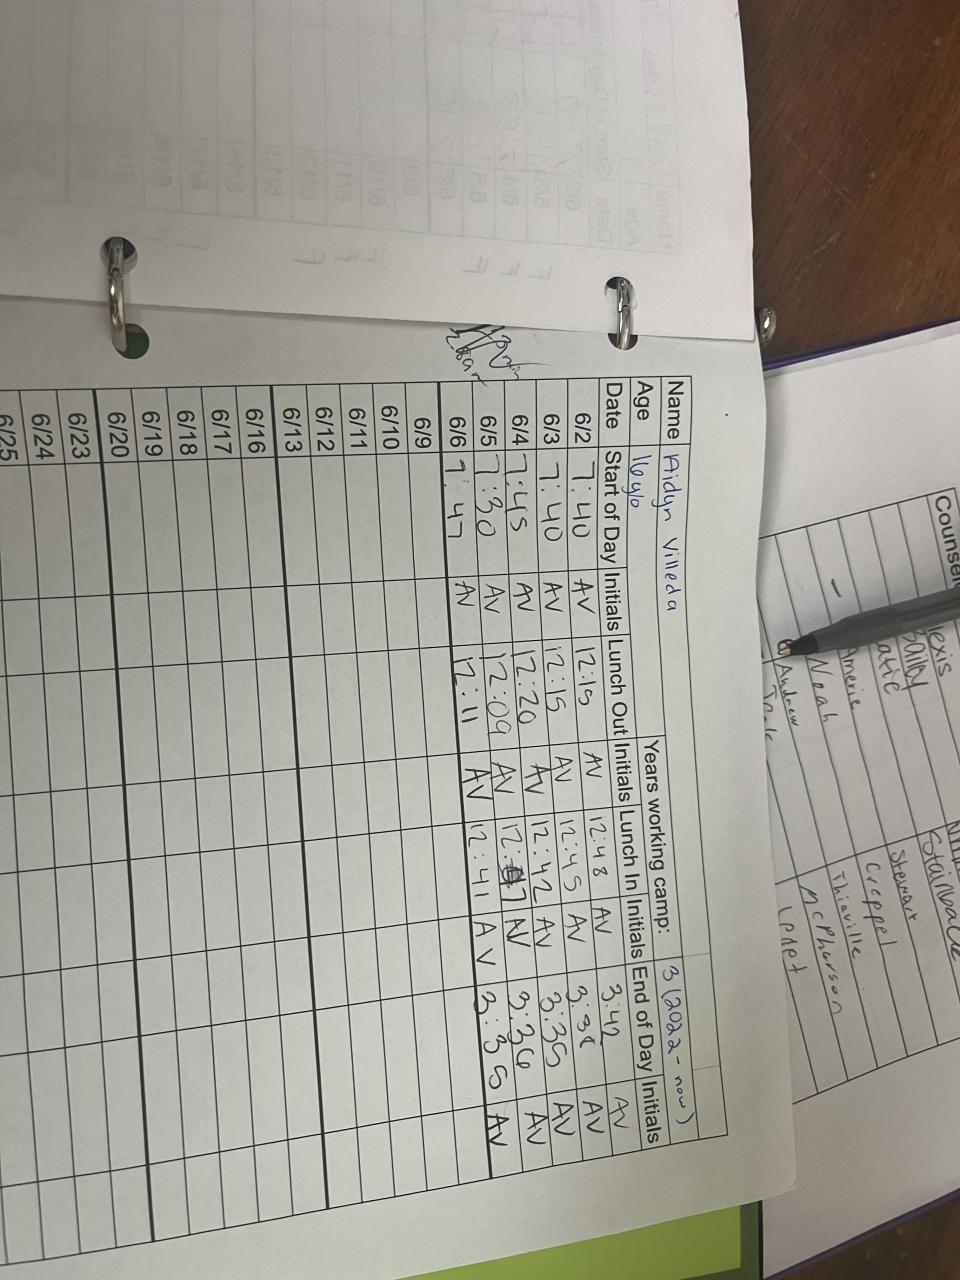 Name Aidyn Villeda
Age 16 y/o Years working camp: 3 (2022 - now)
Date Start of Day Initials Lunch Out Initials Lunch In Initials End of Day Initials
6/2 7:40 AV 12:15 AV 12:48 AV 3:42 AV
6/3 7:40 AV 12:15 AV 12:45 AV AV
6/4 7:45 AV 12:20 AV 12:42 AV 3:35 AV
6/5 7:30 AV 12:09 AV AV 3:36 AV
6/6 7:47 AV 12:11 AV 12:41 AV 3:35 AV
6/9
6/10
6/11
6/12
6/13
6/16
6/17
6/18
6/19
6/20
6/23
6/24
6/25
Stainback
Stewart
Creppel
Noah Thiaville
Andrew McPharson